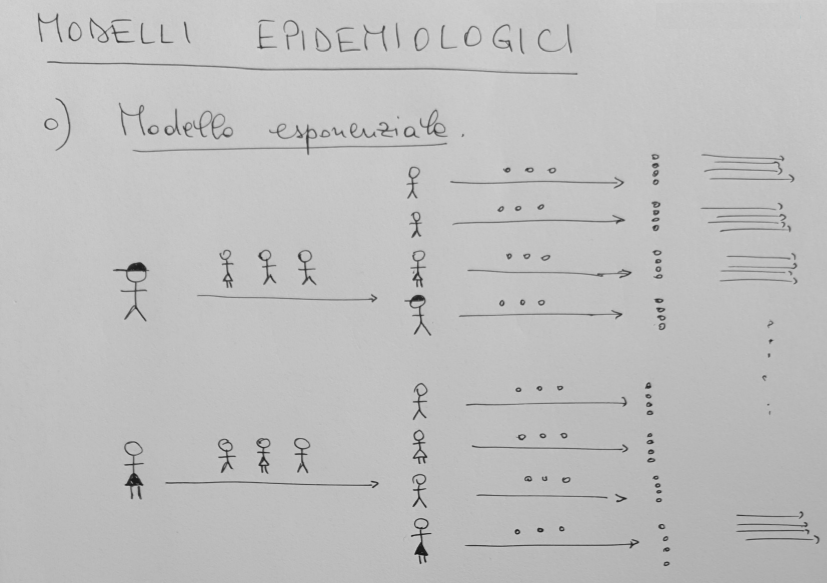 MODELLI EPIDEMIOLOGICI
0) Modello esponenziale.